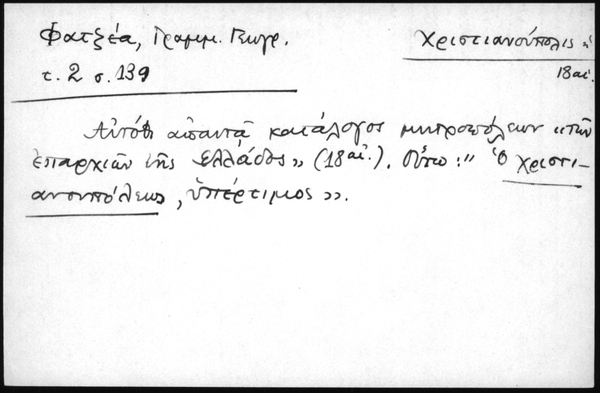 Φατζέα, Γραμμ. Γεωγρ.
Χριστιανούπολις ἡ
τ. 2 σ. 139
18 αἰ.
Αὐτόθι ἀπαντᾷ κατάλογος μητροπόλεων «τῶν
ἐπαρχιῶν τῆς Ἑλλάδος» (18 αἰ.). Οὕτω: "Ὁ Χριστι-
ανουπόλεως, ὑπέρτιμος».